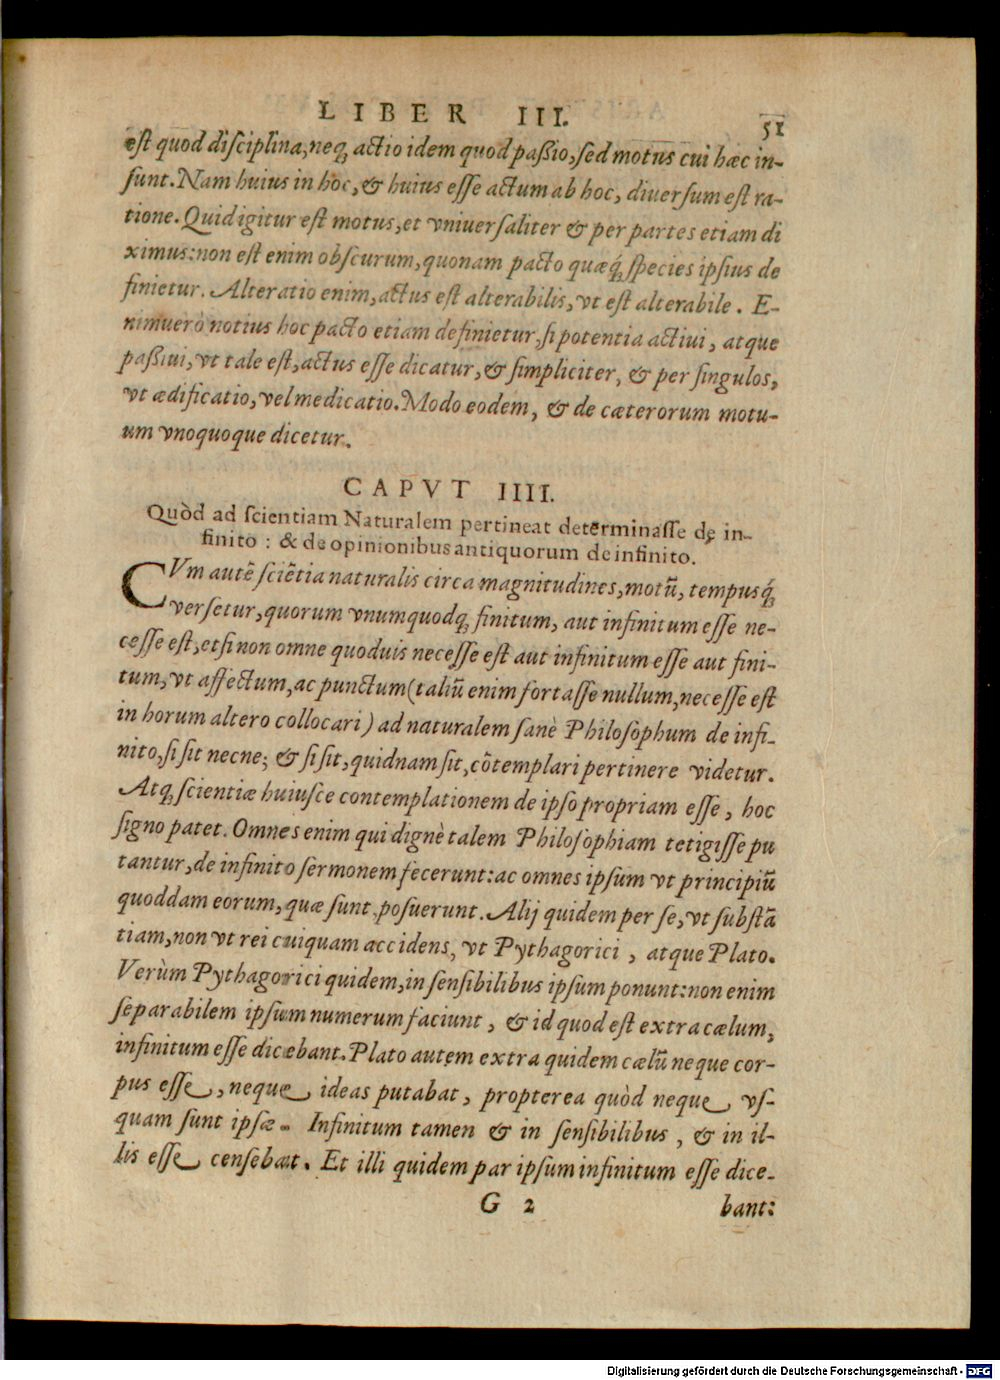 LIBER III. 51
est quod disciplina, neq; actio idem quod paßio, sed motus cui hæc in-
sunt. Nam huius in hoc, & huius esse actum ab hoc, diuersum est ra-
tione. Quid igitur est motus, et vniuersaliter & per partes etiam di
ximus: non est enim obscurum, quonam pacto quæq́; species ipsius de
finietur. Alteratio enim, actus est alterabilis, vt est alterabile. E-
nimuerò notius hoc pacto etiam definietur, si potentia actiui, atque
paßiui, vt tale est, actus esse dicatur, & simpliciter, & per singulos,
vt ædificatio, vel medicatio. Modo eodem, & de cæterorum motu-
um vnoquoque dicetur.
CAPVT IIII.
Quòd ad scientiam Naturalem pertineat determinasse de in-
finito: & de opinionibus antiquorum de infinito.
CVm autẽ sciẽtia naturalis circa magnitudines, motũ, tempusq́;
versetur, quorum vnumquodq; finitum, aut infinitum esse ne-
cesse est, etsi non omne quoduis necesse est aut infinitum esse aut fini-
tum, vt affectum, ac punctum (taliũ enim fortasse nullum, necesse est
in horum altero collocari) ad naturalem sanè Philosophum de infi-
nito, si sit necne; & si sit, quidnam sit, cõtemplari pertinere videtur.
Atq; scientiæ huiusce contemplationem de ipso propriam esse, hoc
signo patet. Omnes enim qui dignè talem Philosophiam tetigisse pu
tantur, de infinito sermonem fecerunt: ac omnes ipsum vt principiũ
quoddam eorum, quæ sunt posuerunt. Alij quidem per se, vt substã
tiam, non vt rei cuiquam accidens, vt Pythagorici, atque Plato.
Verùm Pythagorici quidem, in sensibilibus ipsum ponunt: non enim
separabilem ipsum numerum faciunt, & id quod est extra cælum,
infinitum esse dicebant. Plato autem extra quidem cælũ neque cor-
pus esse, neque ideas putabat, propterea quòd neque vs-
quam sunt ipsæ. Infinitum tamen & in sensibilibus, & in il-
lis esse censebat. Et illi quidem par ipsum infinitum esse dice-
G 2 bant:
Digitalisierung gefördert durch die Deutsche Forschungsgemeinschaft - DFG